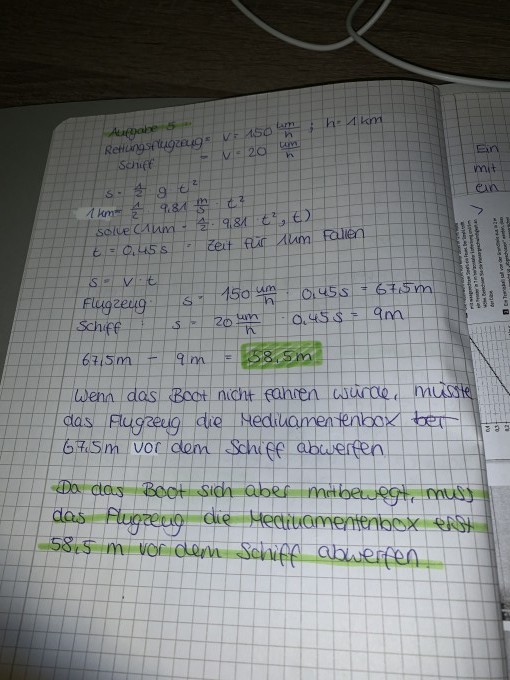 Aufgabe 5
Rettungsflugzeug = v = 150 km/h ; h = 1 km
Schiff = v = 20 km/h
s = 1/2 g t²
1 km = 1/2 · 9,81 m/s · t²
solve (1 km = 1/2 · 9,81 t², t)
t = 0,45 s = Zeit für 1 km Fallen
s = v · t
Flugzeug : s = 150 km/h · 0,45 s = 67,5 m
Schiff : s = 20 km/h · 0,45 s = 9 m
67,5 m - 9 m = 58,5 m
Wenn das Boot nicht fahren würde, müsste
das Flugzeug die Medikamentenbox bei
67,5 m vor dem Schiff abwerfen
Da das Boot sich aber mitbewegt, muss
das Flugzeug die Medikamentenbox erst
58,5 m vor dem Schiff abwerfen.
Ein
mit
ein